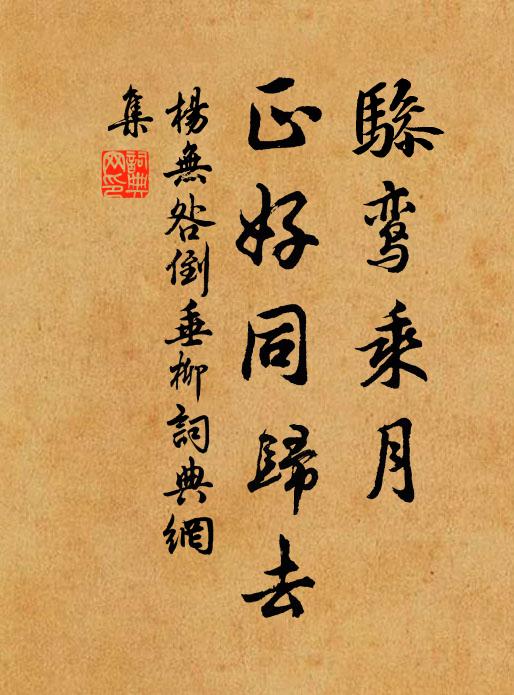 骖鸾乘月
正好同歸去
楊無咎倒垂柳詞典網
集
詞典
网印